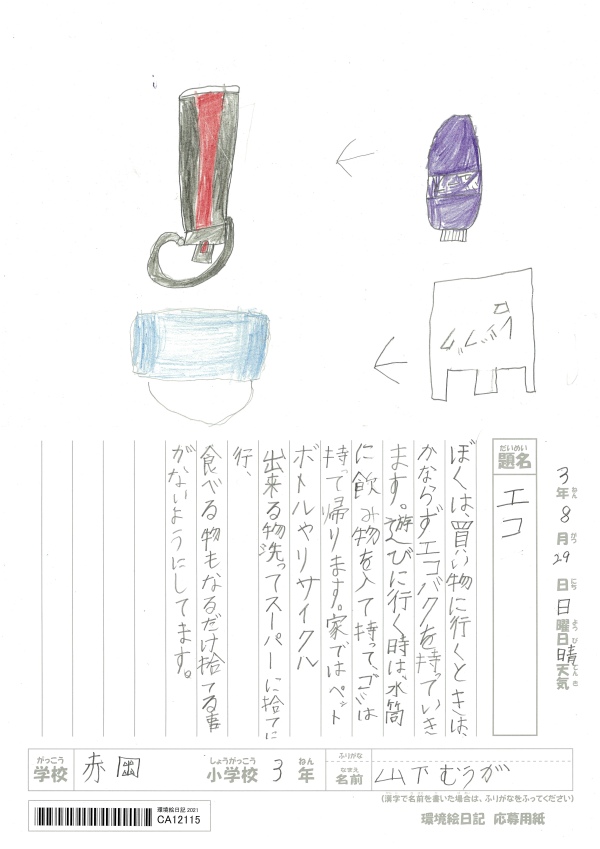 レジぶくろ
3年8月29日日曜日天気晴
ねん
がつ
にち
ようび
てんき
だいめい
題名
エコ
ぼくは、買い物に行くときは、
かならずエコバクを持っていき
ます。遊びに行く時は、水筒
に飲み物を入て持って、ゴミは
持って帰ります。家ではペット
ボトルやリサイクル
出来る物洗ってスーパーに捨てに
行、
食べる物もなるだけ捨てる事
がないようにしてます。
がっこう しょうがっこう ねん ふりがな
学校 赤岡 小学校 3年
なまえ
名前 山下むうが
(漢字で名前を書いた場合は、ふりがなをふってください)
環境絵日記 応募用紙
環境絵日記2021
CA12115